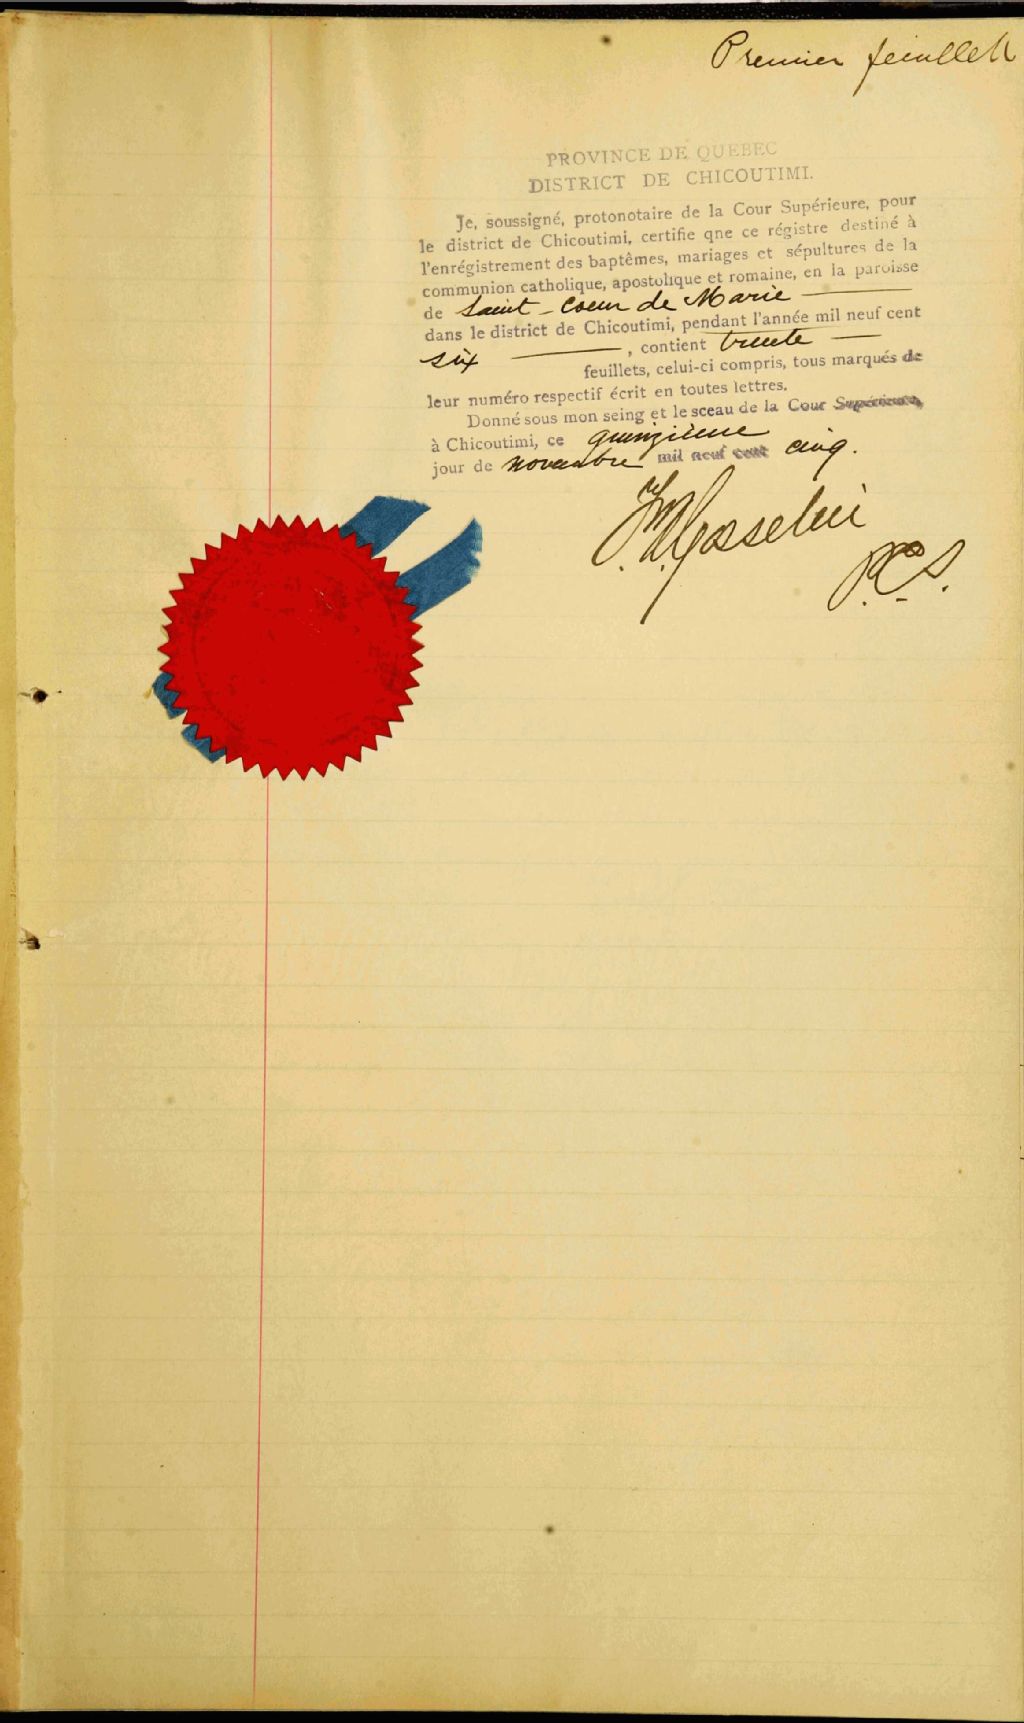 Premier feuillet
PROVINCE DE QUEBEC
DISTRICT DE CHICOUTIMI.
Je, soussigné, protonotaire de la Cour Supérieure, pour
le district de Chicoutimi, certifie qne ce régistre destiné à
l'enrégistrement des baptêmes, mariages et sépultures de la
communion catholique, apostolique et romaine, en la paroisse
de Saint-Coeur de Marie
dans le district de Chicoutimi, pendant l'année mil neuf cent
six , contient trente
feuillets, celui-ci compris, tous marqués de
leur numéro respectif écrit en toutes lettres.
Donné sous mon seing et le sceau de la Cour Supérieure,
à Chicoutimi, ce quinzième
jour de novembre mil neuf cent cinq.
P.C.S.